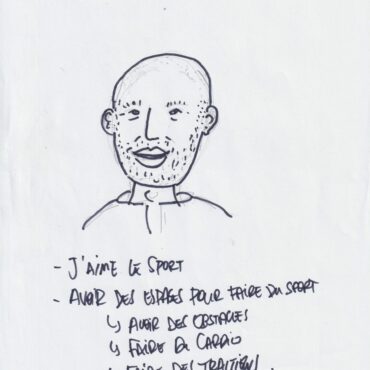 - J'AIME LE SPORT
- AVOIR DES ESPACES POUR FAIRE DU SPORT
↳ AVOIR DES OBSTACLES
↳ FAIRE DU CARDIO
↳ FAIRE DES TRACTIONS